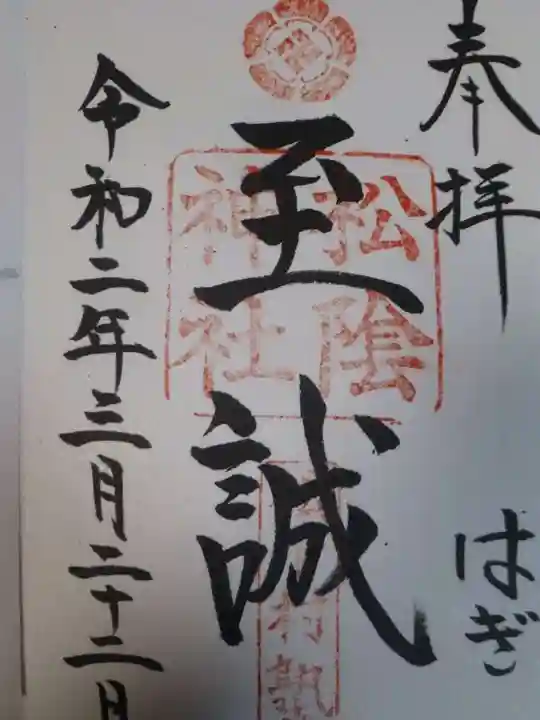 奉拝
はぎ
松陰
神社
至誠
令和二年三月二十二日